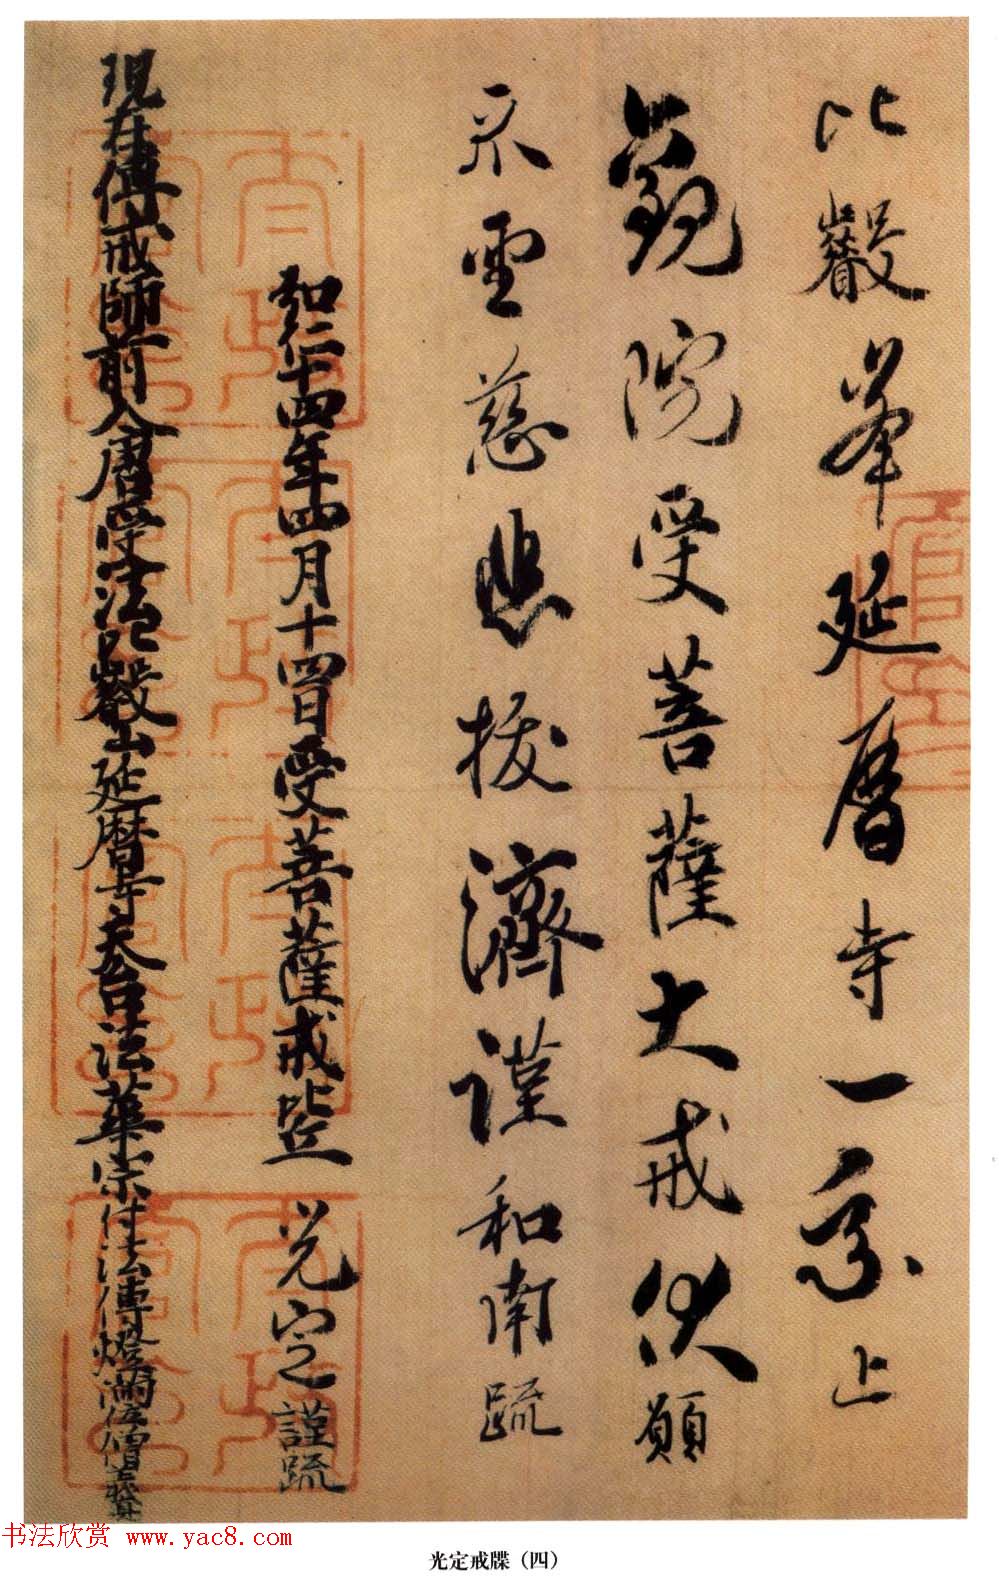 比叡峯延曆寺一乘上
戒院受菩薩大戒伏願
示靈慈悲拔濟謹和南疏
弘仁十四年四月十四日受菩薩戒 光定謹疏
現在傳戒師前入唐受法比叡山延曆寺天台法華宗付法傳燈滿位僧義真
太政官印
书法欣赏 www.yac8.com
光定戒牒（四）